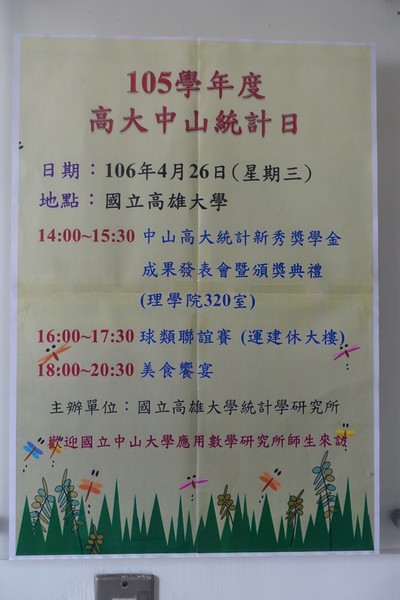 105學年度
高大中山統計日
日期：106年4月26日(星期三)
地點：國立高雄大學
14:00~15:30 中山高大統計新秀獎學金
成果發表會暨頒獎典禮
(理學院320室)
16:00~17:30 球類聯誼賽 (運健休大樓)
18:00~20:30 美食饗宴
主辦單位：國立高雄大學統計學研究所
歡迎國立中山大學應用數學研究所師生來訪